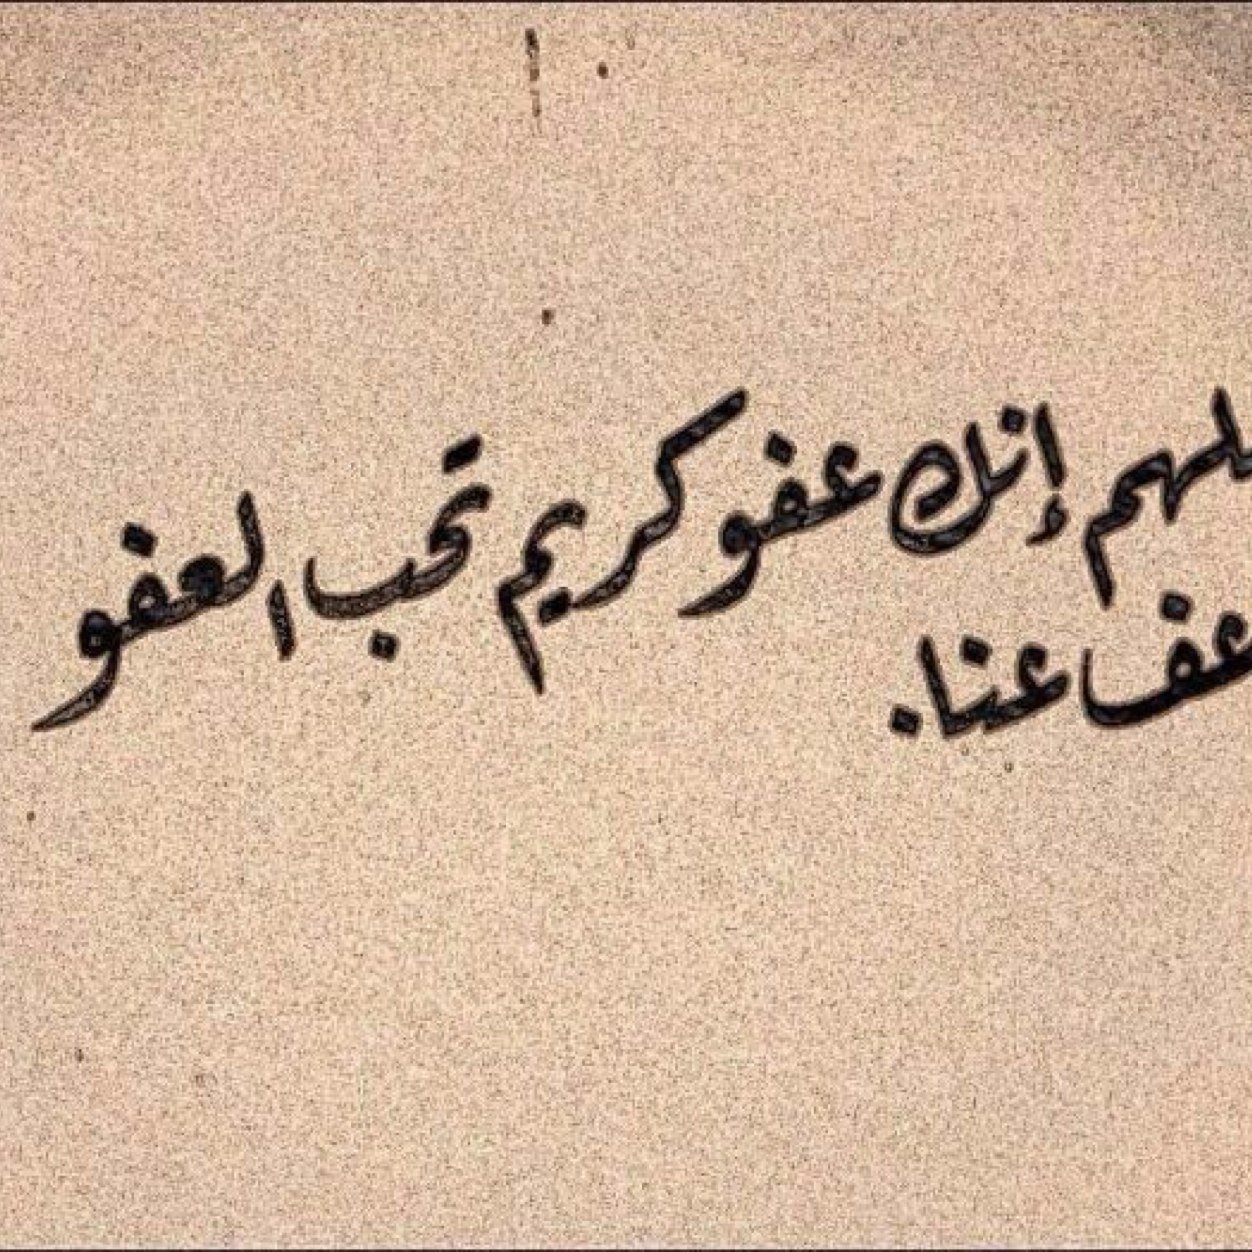 للهم إنك عفو كريم تحب العفو
عف عنا.